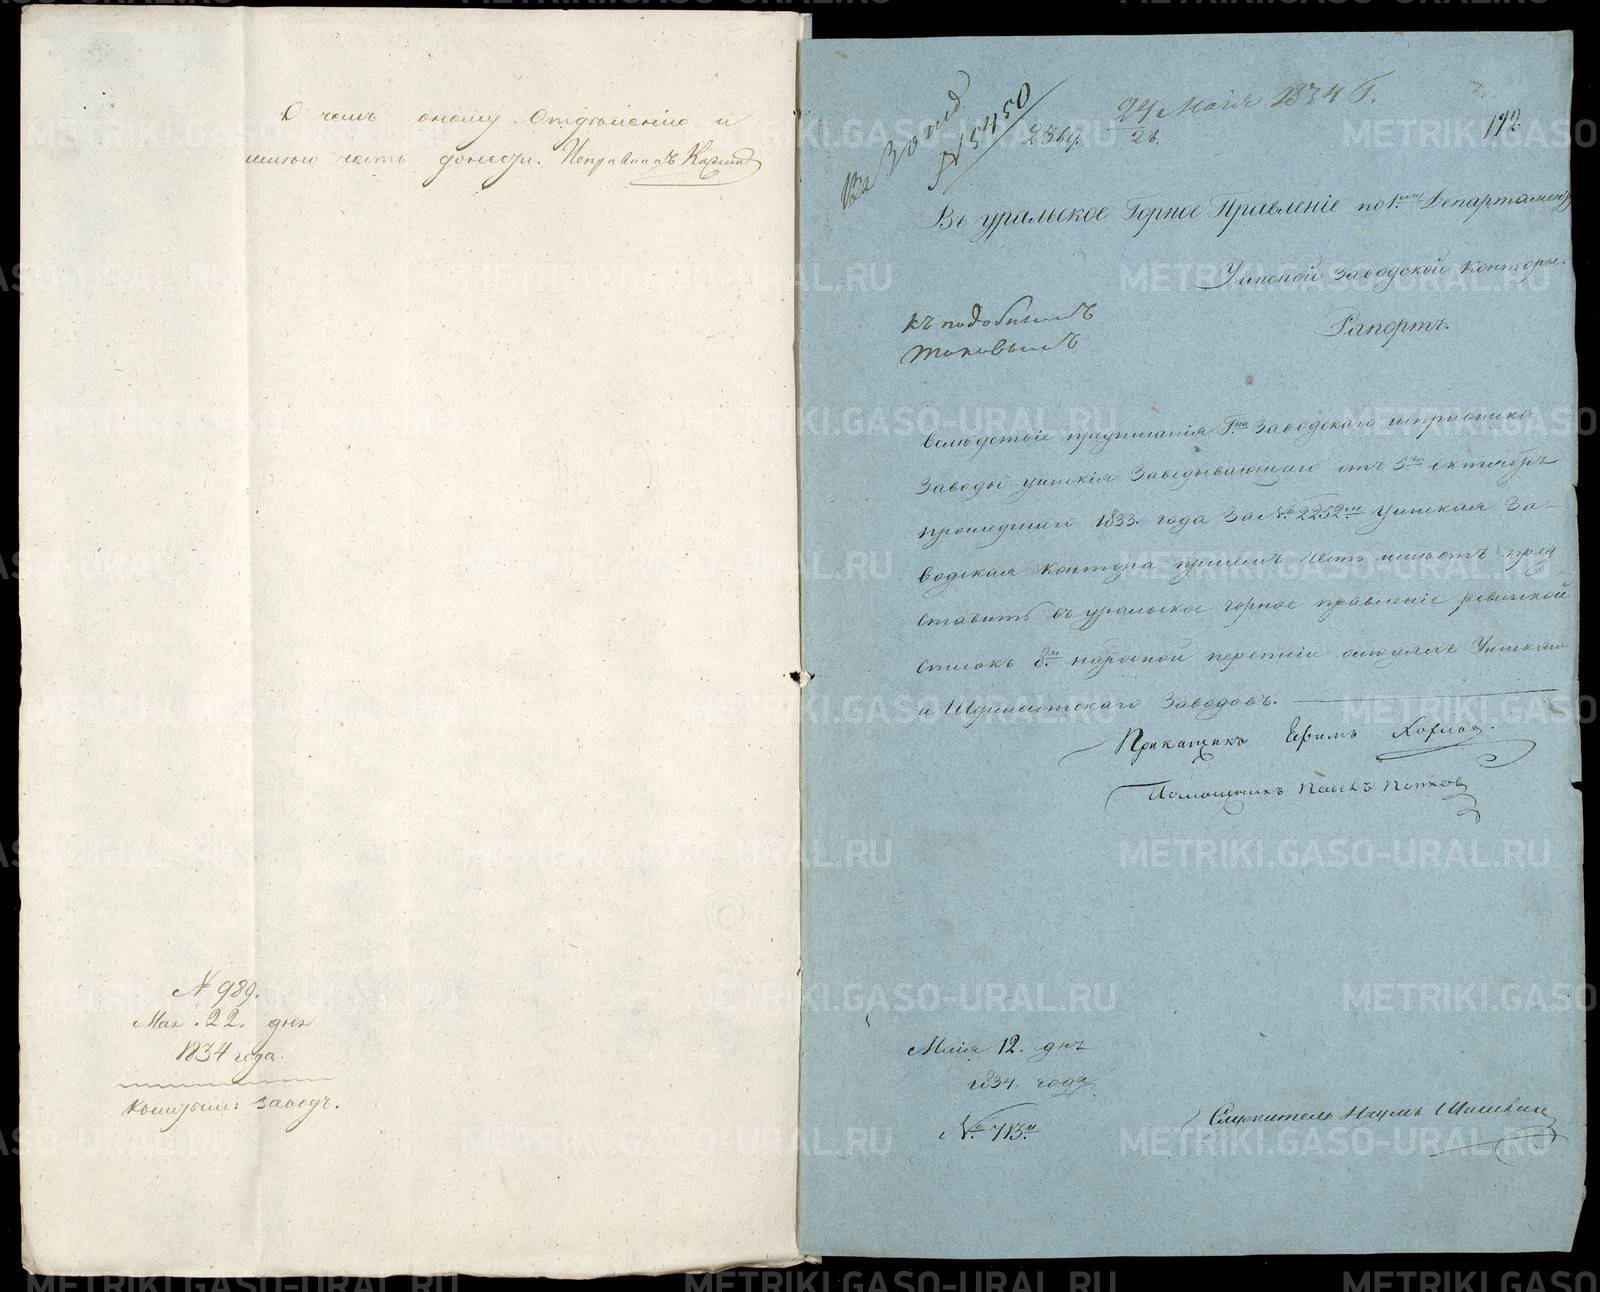 О чемъ оному Отдѣленію и
имѣю честь донести. Исправникъ
№ 989.
Мая 22. дня
1834 года.
Кыштым: заводъ.
№ 15450
2369.
24 Маія 1834 Г.
28.
112
Въ уральское Горное Правленіе по 1.му Департаменту
Уинской заводской Конторы.
Рапортъ.
къ подобнымъ
таковымъ
Вслѣдствіе предписанія Г.на Заводскаго исправника
Заводы уинскія Заведывающаго отъ 5го октября
прошедшаго 1833. года За № 2252мъ Уинская За-
водская контора при семъ честь имѣетъ пред
ставить въ уральское горное правленіе ревижской
списокъ 8й народной переписи о людяхъ Уинскаго
и Шермеитскаго Заводовъ.
Прикащикъ Ефимъ
Помощникъ Попков
Маія 12. дня
1834. года
№ 713.й
Служитель Наумъ